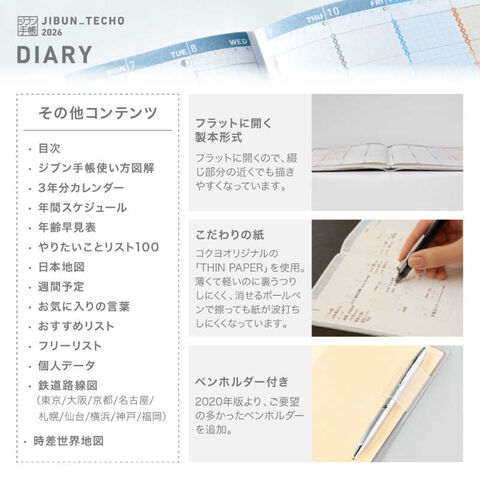 ジブン手帳
JIBUN_TECHO
2026
DIARY
MON 7
TUE 8
WED 9
THU 10
その他コンテンツ
・目次
・ジブン手帳使い方図解
・3年分カレンダー
・年間スケジュール
・年齢早見表
・やりたいことリスト100
・日本地図
・週間予定
・お気に入りの言葉
・おすすめリスト
・フリーリスト
・個人データ
・鉄道路線図
(東京/大阪/京都/名古屋/
札幌/仙台/横浜/神戸/福岡)
・時差世界地図
フラットに開く
製本形式
フラットに開くので、綴
じ部分の近くでも描き
やすくなっています。
こだわりの紙
コクヨオリジナルの
「THIN PAPER」を使用。
薄くて軽いのに裏うつり
しにくく、消せるボールペ
ンで擦っても紙が波打ち
しにくくなっています。
ペンホルダー付き
2020年版より、ご要望
の多かったペンホルダー
を追加。